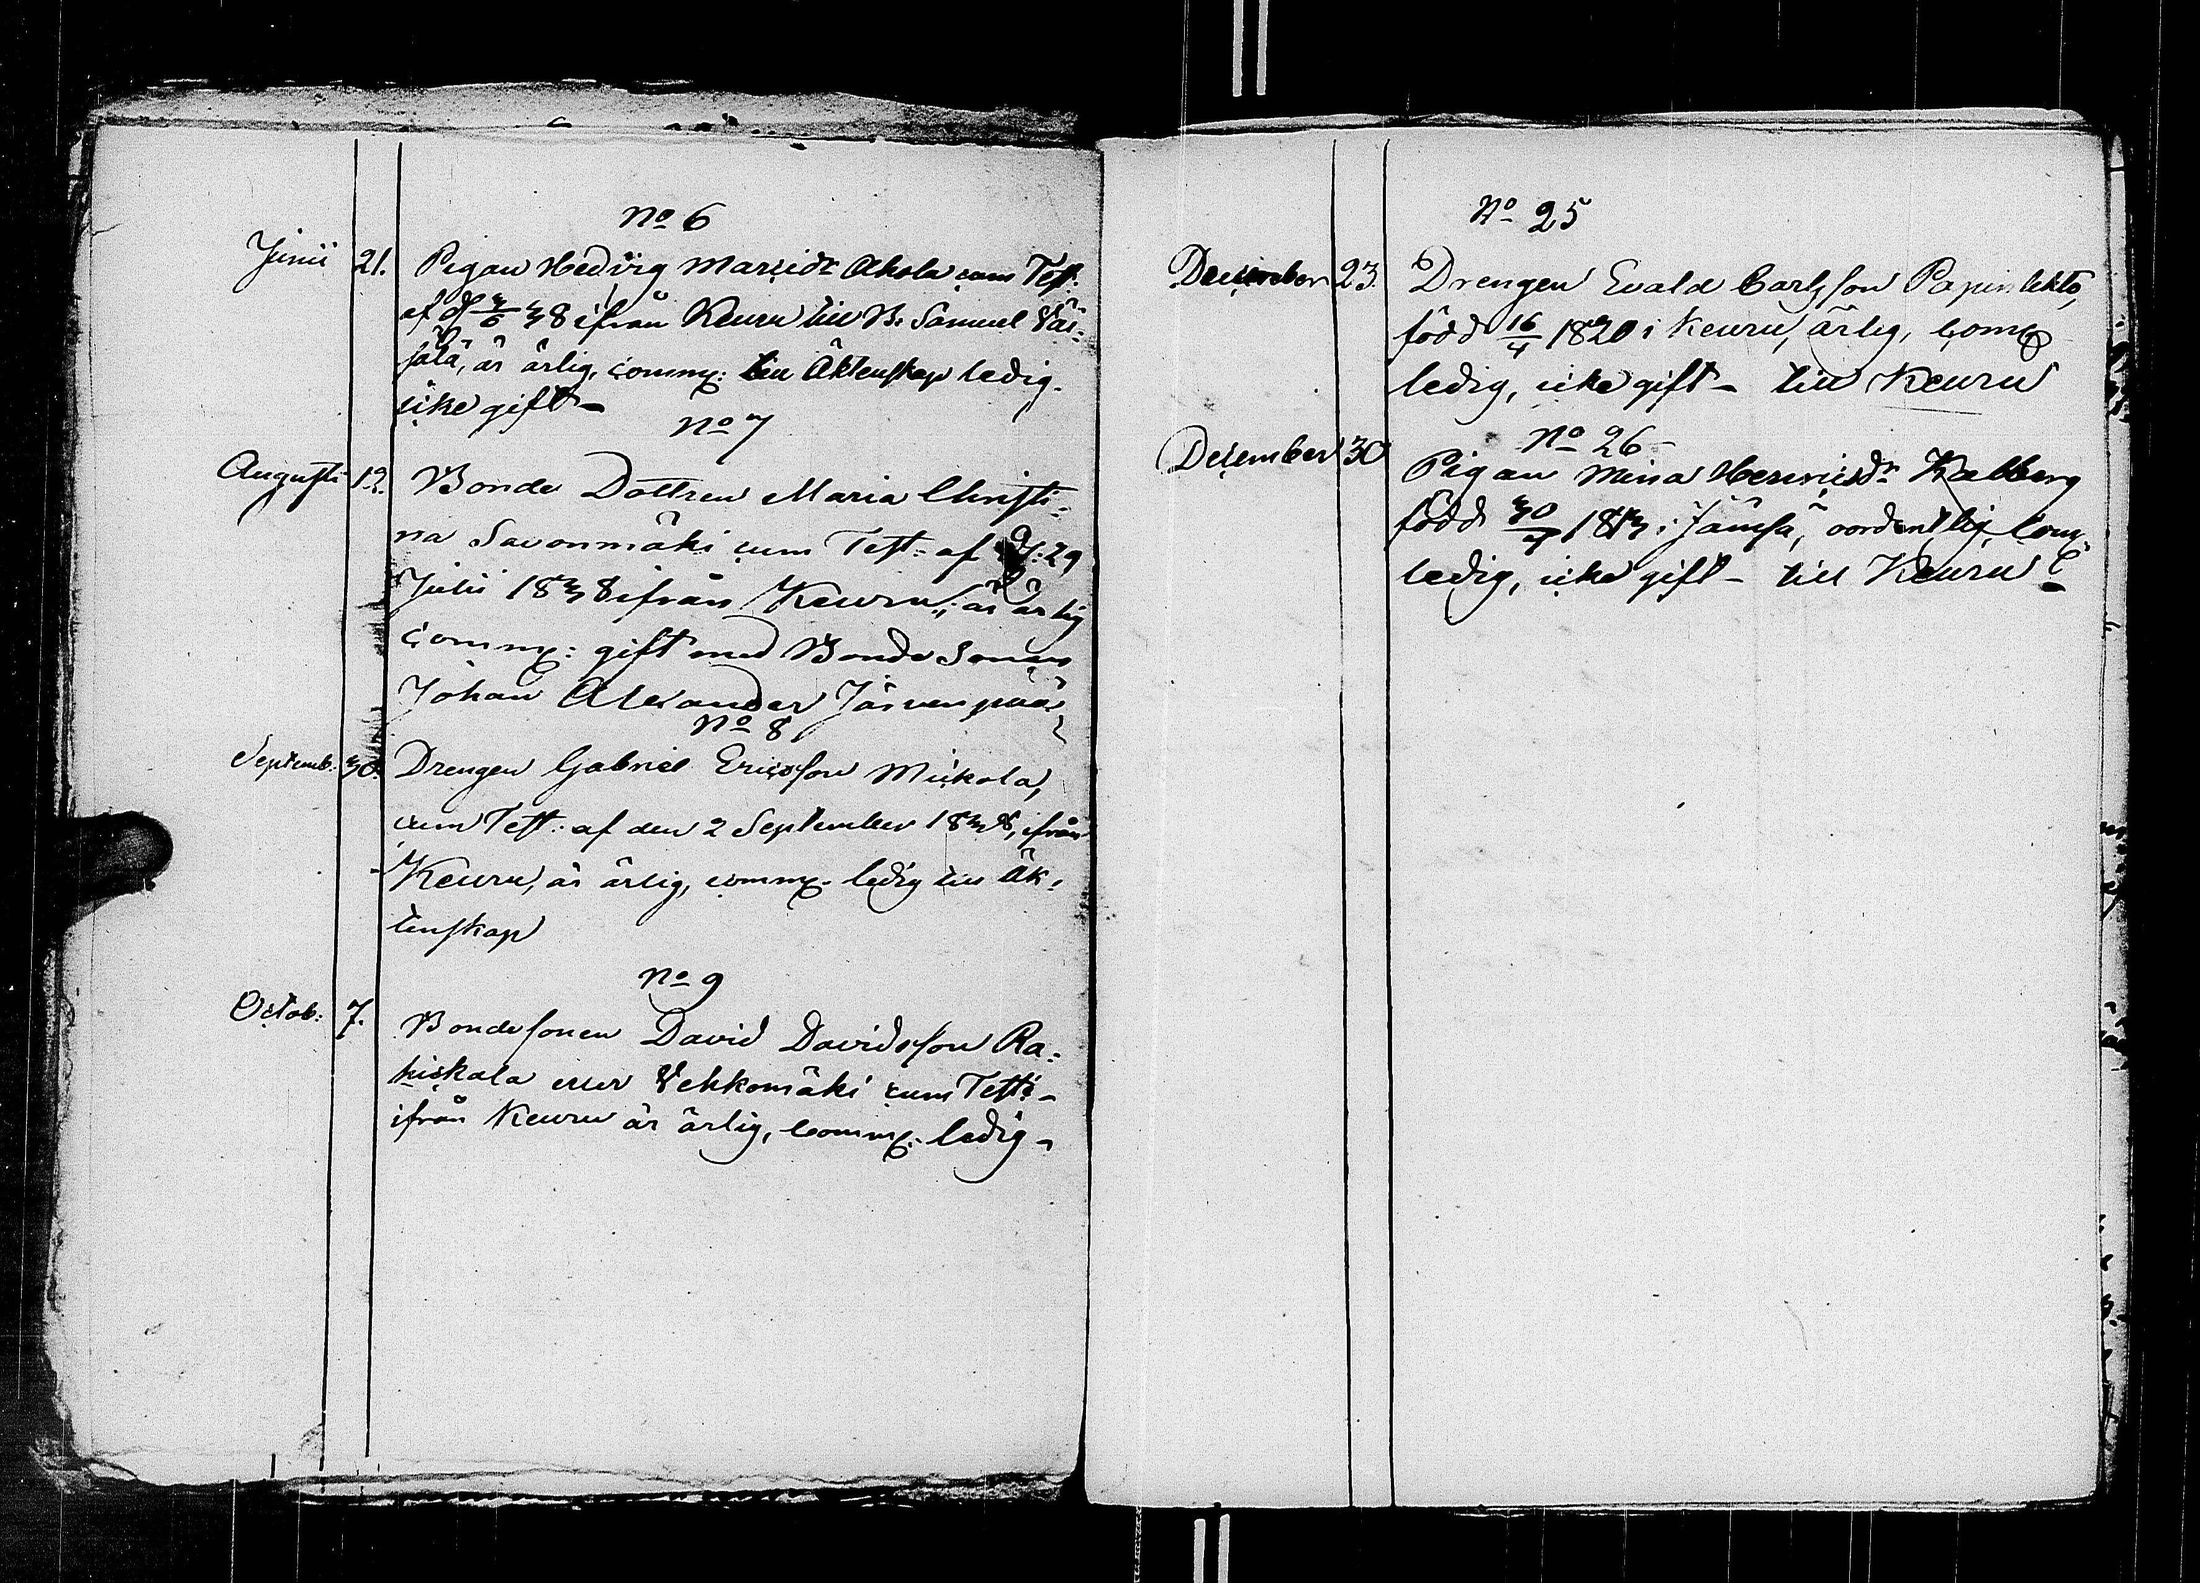 No 6
Junii 21. Pigan Hedvig Marcidr Ahola cum Test:
af d 3/6 38 ifrån Keuru till B. Samuel Väi-
sälä, är ärlig, commx: till Äktenskap ledig.
icke gift –
No 7
Augusti 12. Bonde Dottren Maria Christi-
na Savonmäki cum Test: af d: 29
Julii 1838 ifrån Keuru, är ärlig
commx: gift med Bonde Sonen
Johan Alexander Järvenpää
No 8
Septemb: 30. Drengen Gabriel Ericsson Mickola,
cum Test: af den 2 September 1838, ifrån
Keuru, är ärlig, commx. ledig till Äk-
tenskap
No 9
Octob: 7. Bondesonen David Davidsson Ra-
hiskala eller Vehkomäki cum Test: –
ifrån Keuru är ärlig, commx. ledig –
No 25
December 23. Drengen Evald Carlsson Papinlekto,
född 16/4 1820 i Keuru, ärlig, comx
ledig, icke gift – till Keuru
No 26 –
December 30 Pigan Mina Henricsdr Kalberg
född 30/7 1813 i Jämsä, oordentlig, com:
ledig, icke gift – till Keuru